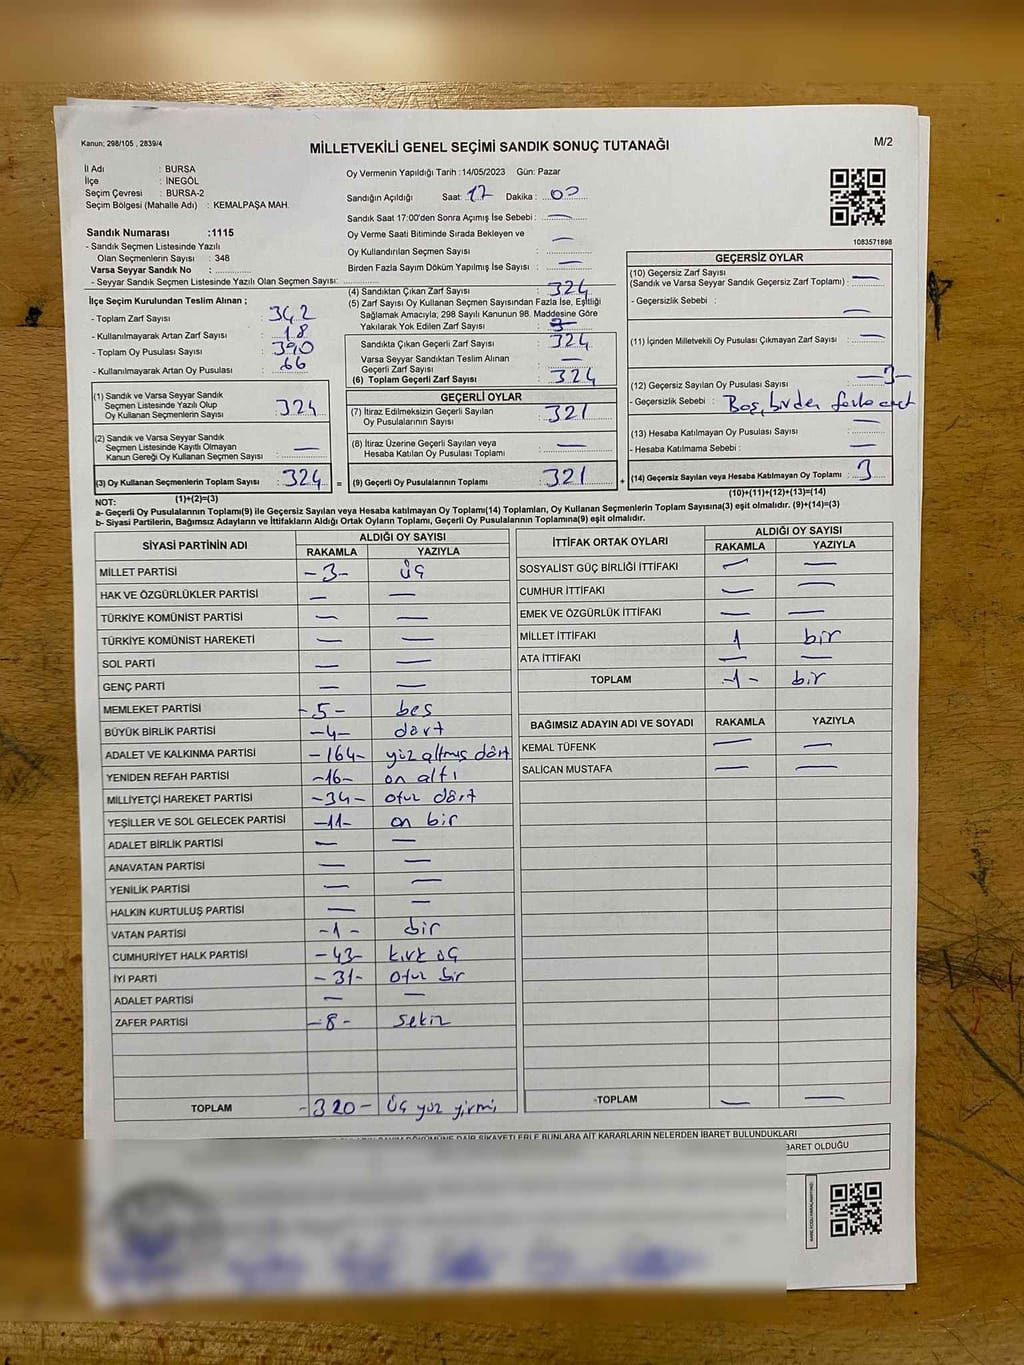 Kanun; 298/105 , 2839/4
MİLLETVEKİLİ GENEL SEÇİMİ SANDIK SONUÇ TUTANAĞI
M/2
İl Adı : BURSA
İlçe : İNEGÖL
Seçim Çevresi : BURSA-2
Seçim Bölgesi (Mahalle Adı) : KEMALPAŞA MAH.
Oy Vermenin Yapıldığı Tarih :14/05/2023 Gün: Pazar
Sandığın Açıldığı Saat: 17 Dakika : 00
Sandık Saat 17:00'den Sonra Açımış İse Sebebi : —
Oy Verme Saati Bitiminde Sırada Bekleyen ve —
Oy Kullandırılan Seçmen Sayısı :
Birden Fazla Sayım Döküm Yapılmış İse Sayısı : —
1083571898
Sandık Numarası :1115
- Sandık Seçmen Listesinde Yazılı
Olan Seçmenlerin Sayısı : 348
Varsa Seyyar Sandık No : ..............
- Seyyar Sandık Seçmen Listesinde Yazılı Olan Seçmen Sayısı: ..............
İlçe Seçim Kurulundan Teslim Alınan ;
- Toplam Zarf Sayısı : 342
- Kullanılmayarak Artan Zarf Sayısı : 18
- Toplam Oy Pusulası Sayısı : 390
- Kullanılmayarak Artan Oy Pusulası : 66
(1) Sandık ve Varsa Seyyar Sandık
Seçmen Listesinde Yazılı Olup
Oy Kullanan Seçmenlerin Sayısı : 324
(2) Sandık ve Varsa Seyyar Sandık
Seçmen Listesinde Kayıtlı Olmayan
Kanun Gereği Oy Kullanan Seçmen Sayısı : —
(3) Oy Kullanan Seçmenlerin Toplam Sayısı : 324 =
(1)+(2)=(3)
(4) Sandıktan Çıkan Zarf Sayısı : 324
(5) Zarf Sayısı Oy Kullanan Seçmen Sayısından Fazla İse, Eşitliği
Sağlamak Amacıyla; 298 Sayılı Kanunun 98. Maddesine Göre
Yakılarak Yok Edilen Zarf Sayısı :
Sandıkta Çıkan Geçerli Zarf Sayısı : 324
Varsa Seyyar Sandıktan Teslim Alınan
Geçerli Zarf Sayısı : —
(6) Toplam Geçerli Zarf Sayısı : 324
GEÇERLİ OYLAR
(7) İtiraz Edilmeksizin Geçerli Sayılan
Oy Pusulalarının Sayısı : 321
(8) İtiraz Üzerine Geçerli Sayılan veya
Hesaba Katılan Oy Pusulası Toplamı : —
(9) Geçerli Oy Pusulalarının Toplamı : 321 +
GEÇERSİZ OYLAR
(10) Geçersiz Zarf Sayısı
(Sandık ve Varsa Seyyar Sandık Geçersiz Zarf Toplamı) : —
- Geçersizlik Sebebi : —
(11) İçinden Milletvekili Oy Pusulası Çıkmayan Zarf Sayısı : —
(12) Geçersiz Sayılan Oy Pusulası Sayısı : -3-
- Geçersizlik Sebebi : Boş, birden fazla evet
(13) Hesaba Katılmayan Oy Pusulası Sayısı : —
- Hesaba Katılmama Sebebi : —
(14) Geçersiz Sayılan veya Hesaba Katılmayan Oy Toplamı : 3
(10)+(11)+(12)+(13)=(14)
NOT:
a- Geçerli Oy Pusulalarının Toplamı(9) ile Geçersiz Sayılan veya Hesaba katılmayan Oy Toplamı(14) Toplamları, Oy Kullanan Seçmenlerin Toplam Sayısına(3) eşit olmalıdır. (9)+(14)=(3)
b- Siyasi Partilerin, Bağımsız Adayların ve İttifakların Aldığı Ortak Oyların Toplamı, Geçerli Oy Pusulalarının Toplamına(9) eşit olmalıdır.
SİYASİ PARTİNİN ADI ALDIĞI OY SAYISI
RAKAMLA YAZIYLA
MİLLET PARTİSİ -3- üç
HAK VE ÖZGÜRLÜKLER PARTİSİ — —
TÜRKİYE KOMÜNİST PARTİSİ — —
TÜRKİYE KOMÜNİST HAREKETİ — —
SOL PARTİ — —
GENÇ PARTİ — —
MEMLEKET PARTİSİ -5- beş
BÜYÜK BİRLİK PARTİSİ -4- dört
ADALET VE KALKINMA PARTİSİ -164- yüz altmış dört
YENİDEN REFAH PARTİSİ -16- on altı
MİLLİYETÇİ HAREKET PARTİSİ -34- otuz dört
YEŞİLLER VE SOL GELECEK PARTİSİ -11- on bir
ADALET BİRLİK PARTİSİ — —
ANAVATAN PARTİSİ — —
YENİLİK PARTİSİ — —
HALKIN KURTULUŞ PARTİSİ — —
VATAN PARTİSİ -1- bir
CUMHURİYET HALK PARTİSİ -43- kırk üç
İYİ PARTİ -31- otuz bir
ADALET PARTİSİ — —
ZAFER PARTİSİ -8- sekiz
TOPLAM -320- üç yüz yirmi
İTTİFAK ORTAK OYLARI ALDIĞI OY SAYISI
RAKAMLA YAZIYLA
SOSYALİST GÜÇ BİRLİĞİ İTTİFAKI — —
CUMHUR İTTİFAKI — —
EMEK VE ÖZGÜRLÜK İTTİFAKI — —
MİLLET İTTİFAKI 1 bir
ATA İTTİFAKI — —
TOPLAM -1- bir
BAĞIMSIZ ADAYIN ADI VE SOYADI RAKAMLA YAZIYLA
KEMAL TÜFENK — —
SALİCAN MUSTAFA — —
TOPLAM — —
KARARLARIN NELERDEN İBARET BULUNDUKLARI
BARET OLDUĞU